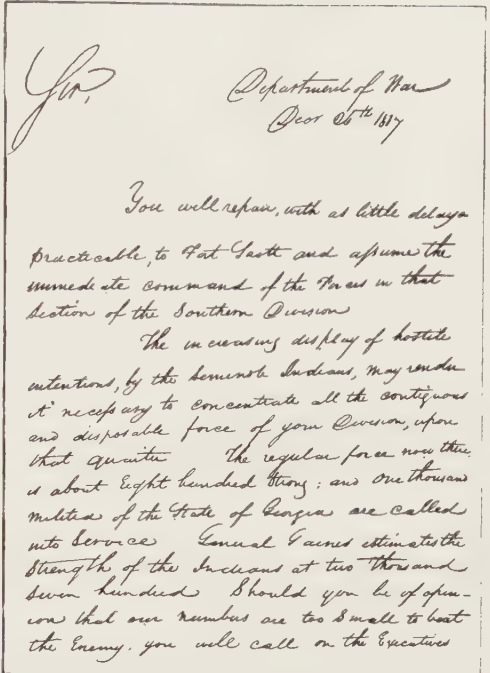 Sir,
Department of War
Decr 26th 1817
You will repair, with as little delay as
practicable, to Fort Scott and assume the
immediate command of the Forces in that
Section of the Southern Division
The increasing display of hostile
intentions, by the Seminole Indians, may render
it necessary to concentrate all the contiguous
and disposable force of your Division, upon
that quarter The regular force now there
is about Eight hundred Strong; and One thousand
Militia of the State of Georgia are called
into Service General Gaines estimates the
Strength of the Indians at two thousand
Seven hundred Should you be of opin-
ion that our numbers are too Small to beat
the Enemy. you will call on the Executives